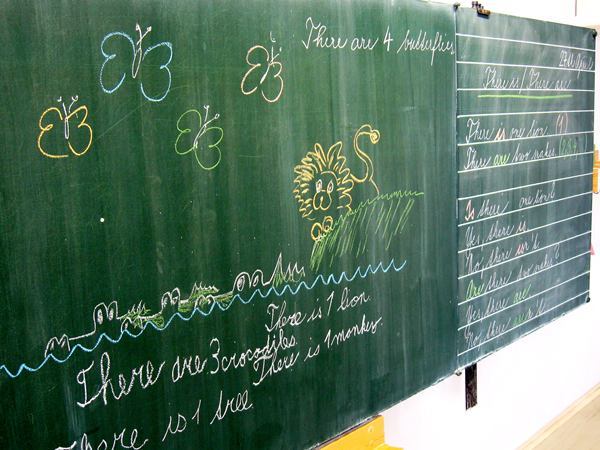 There are 4 butterflies
There is 1 lion.
There are 3 crocodiles.
There is 1 monkey.
There is 1 tree.
There is / There are
There is one lion (1)
There are two
Is there one lion?
Yes, there is
No, there isn't
Are there two
Yes there are
No there aren't